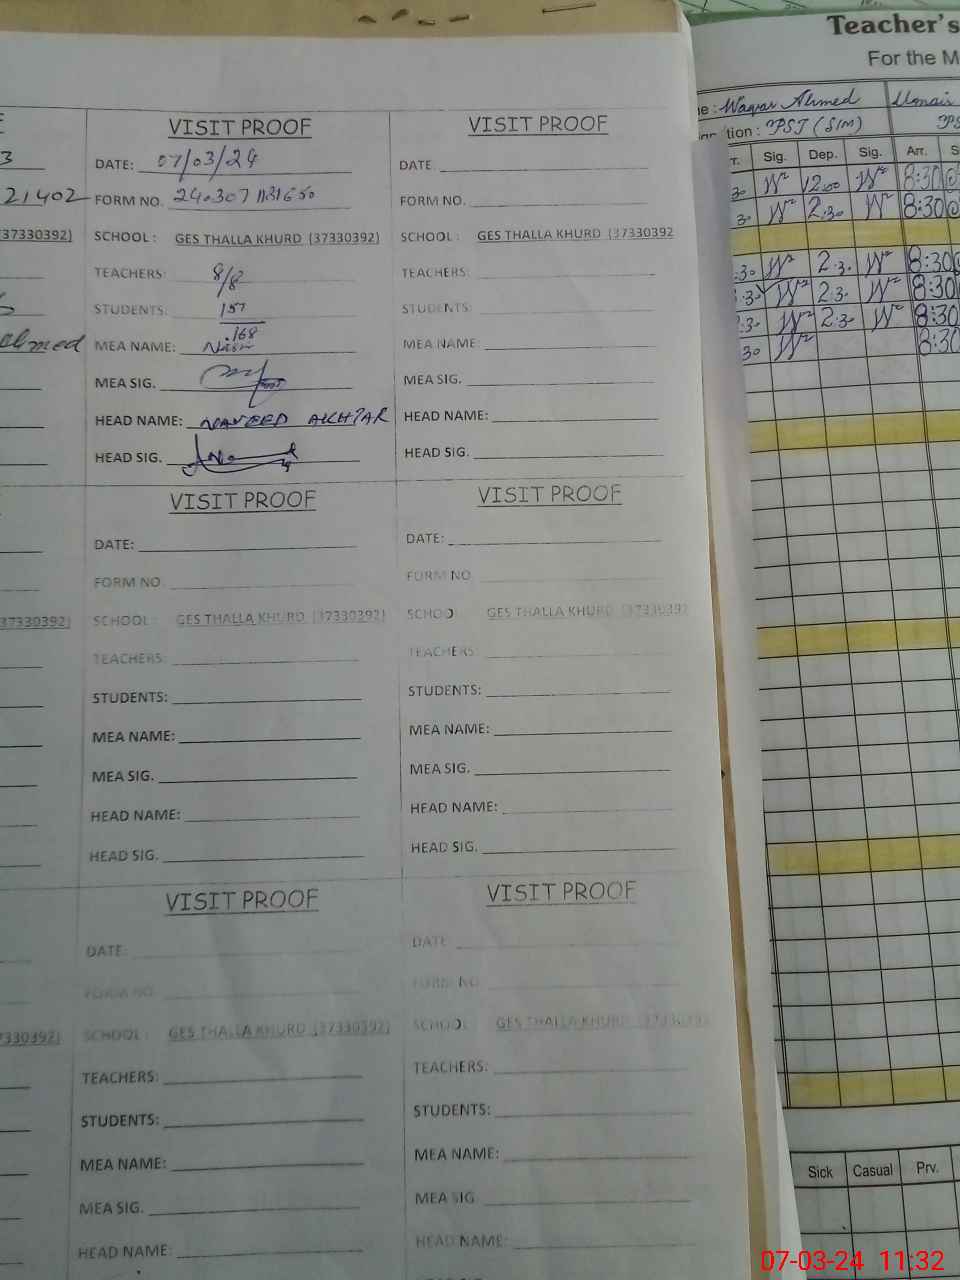 Teacher's
For the M
Waqar Ahmed
tion : PST (SIM)
Sig. Dep. Sig. Arr.
12.00 8:30
2.30 8:30
2.3. 8:30
2.3. 8:30
2.3. 8:30
8:30
3
21402
37330392)
VISIT PROOF
DATE: 07/03/24
FORM NO.
SCHOOL : GES THALLA KHURD (37330392)
TEACHERS: 8/8
STUDENTS: 157
168
MEA NAME:
MEA SIG.
HEAD NAME: NAVEED AKHTAR
HEAD SIG.
VISIT PROOF
DATE
FORM NO.
SCHOOL : GES THALLA KHURD (37330392
TEACHERS:
STUDENTS:
MEA NAME:
MEA SIG.
HEAD NAME:
HEAD SIG.
37330392)
VISIT PROOF
DATE:
FORM NO.
SCHOOL : GES THALLA KHURD (37330392)
TEACHERS:
STUDENTS:
MEA NAME:
MEA SIG.
HEAD NAME:
HEAD SIG.
VISIT PROOF
DATE:
FORM NO
SCHOOL GES THALLA KHURD (37330392
TEACHERS:
STUDENTS:
MEA NAME:
MEA SIG.
HEAD NAME:
HEAD SIG.
7330392)
VISIT PROOF
DATE:
FORM NO.
SCHOOL : GES THALLA KHURD (37330392)
TEACHERS:
STUDENTS:
MEA NAME:
MEA SIG.
HEAD NAME:
VISIT PROOF
DATE
FORM NO
SCHOOL GES THALLA KHURD (37330392
TEACHERS:
STUDENTS:
MEA NAME:
MEA SIG
HEAD NAME:
Sick Casual Prv.
07-03-24 11:32